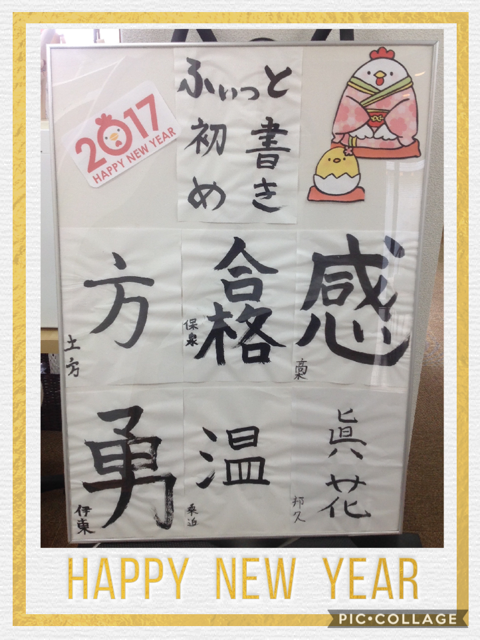 2017
HAPPY NEW YEAR
ふぃっと
初書
めき
感
合格
保泉
方
土方
眞花
邦久
温
勇
伊東
HAPPY NEW YEAR
PIC•COLLAGE